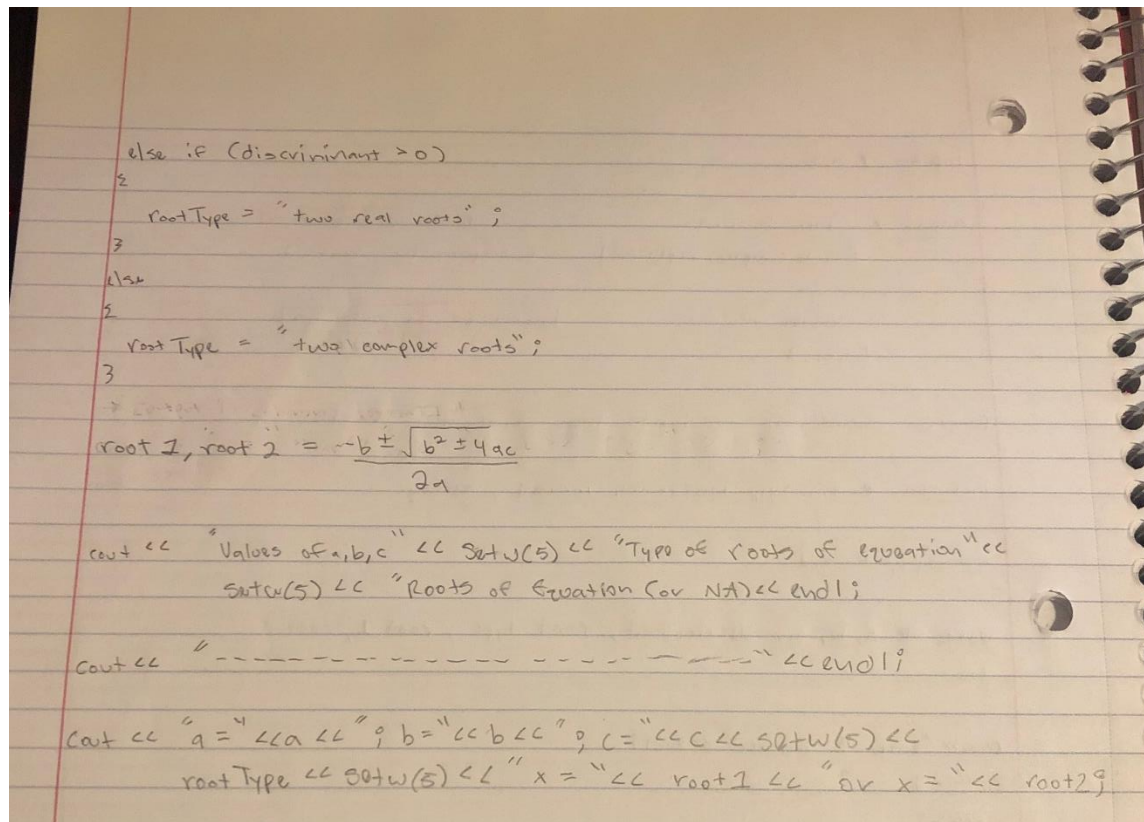 else if (discrininant > 0)
{
rootType = "two real roots" ;
}
else
{
root Type = "two complex roots" ;
}
root 1, root 2 = -b ± √b² ± 4ac
2a
cout << "Values of a,b,c" << Setw(5) << "Type of roots of equation" <<
Setw(5) << "Roots of Equation (or NA) << endl ;
cout << "-----------------------" << endl ;
cout << "a = " <<a << " ; b=" << b << " ; c= " << c << setw(5) <<
root Type << setw(5) << " x = " << root 1 << "or x = " << root2 ;